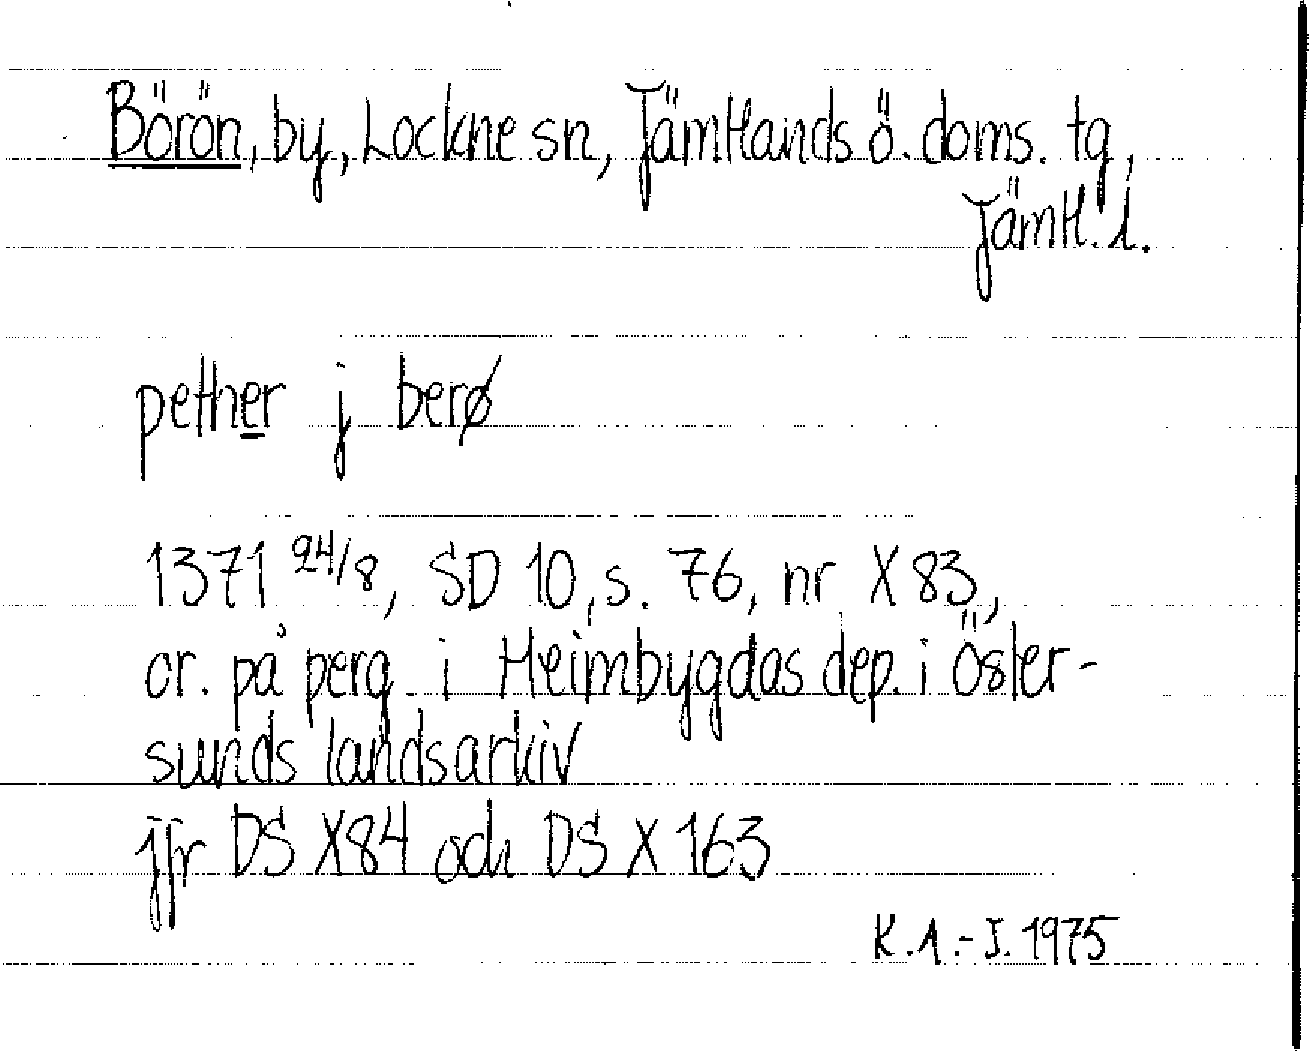 Börön, by, Lockne sn, Jämtlands ö. doms. tg,
Jämtl. l.
pether j berø
1371 24/8, SD 10, s. 76, nr X 83,
or. på perg. i Heimbygdas dep. i Öster-
sunds landsarkiv
jfr DS X84 och DS X 163
K.A.-J. 1975